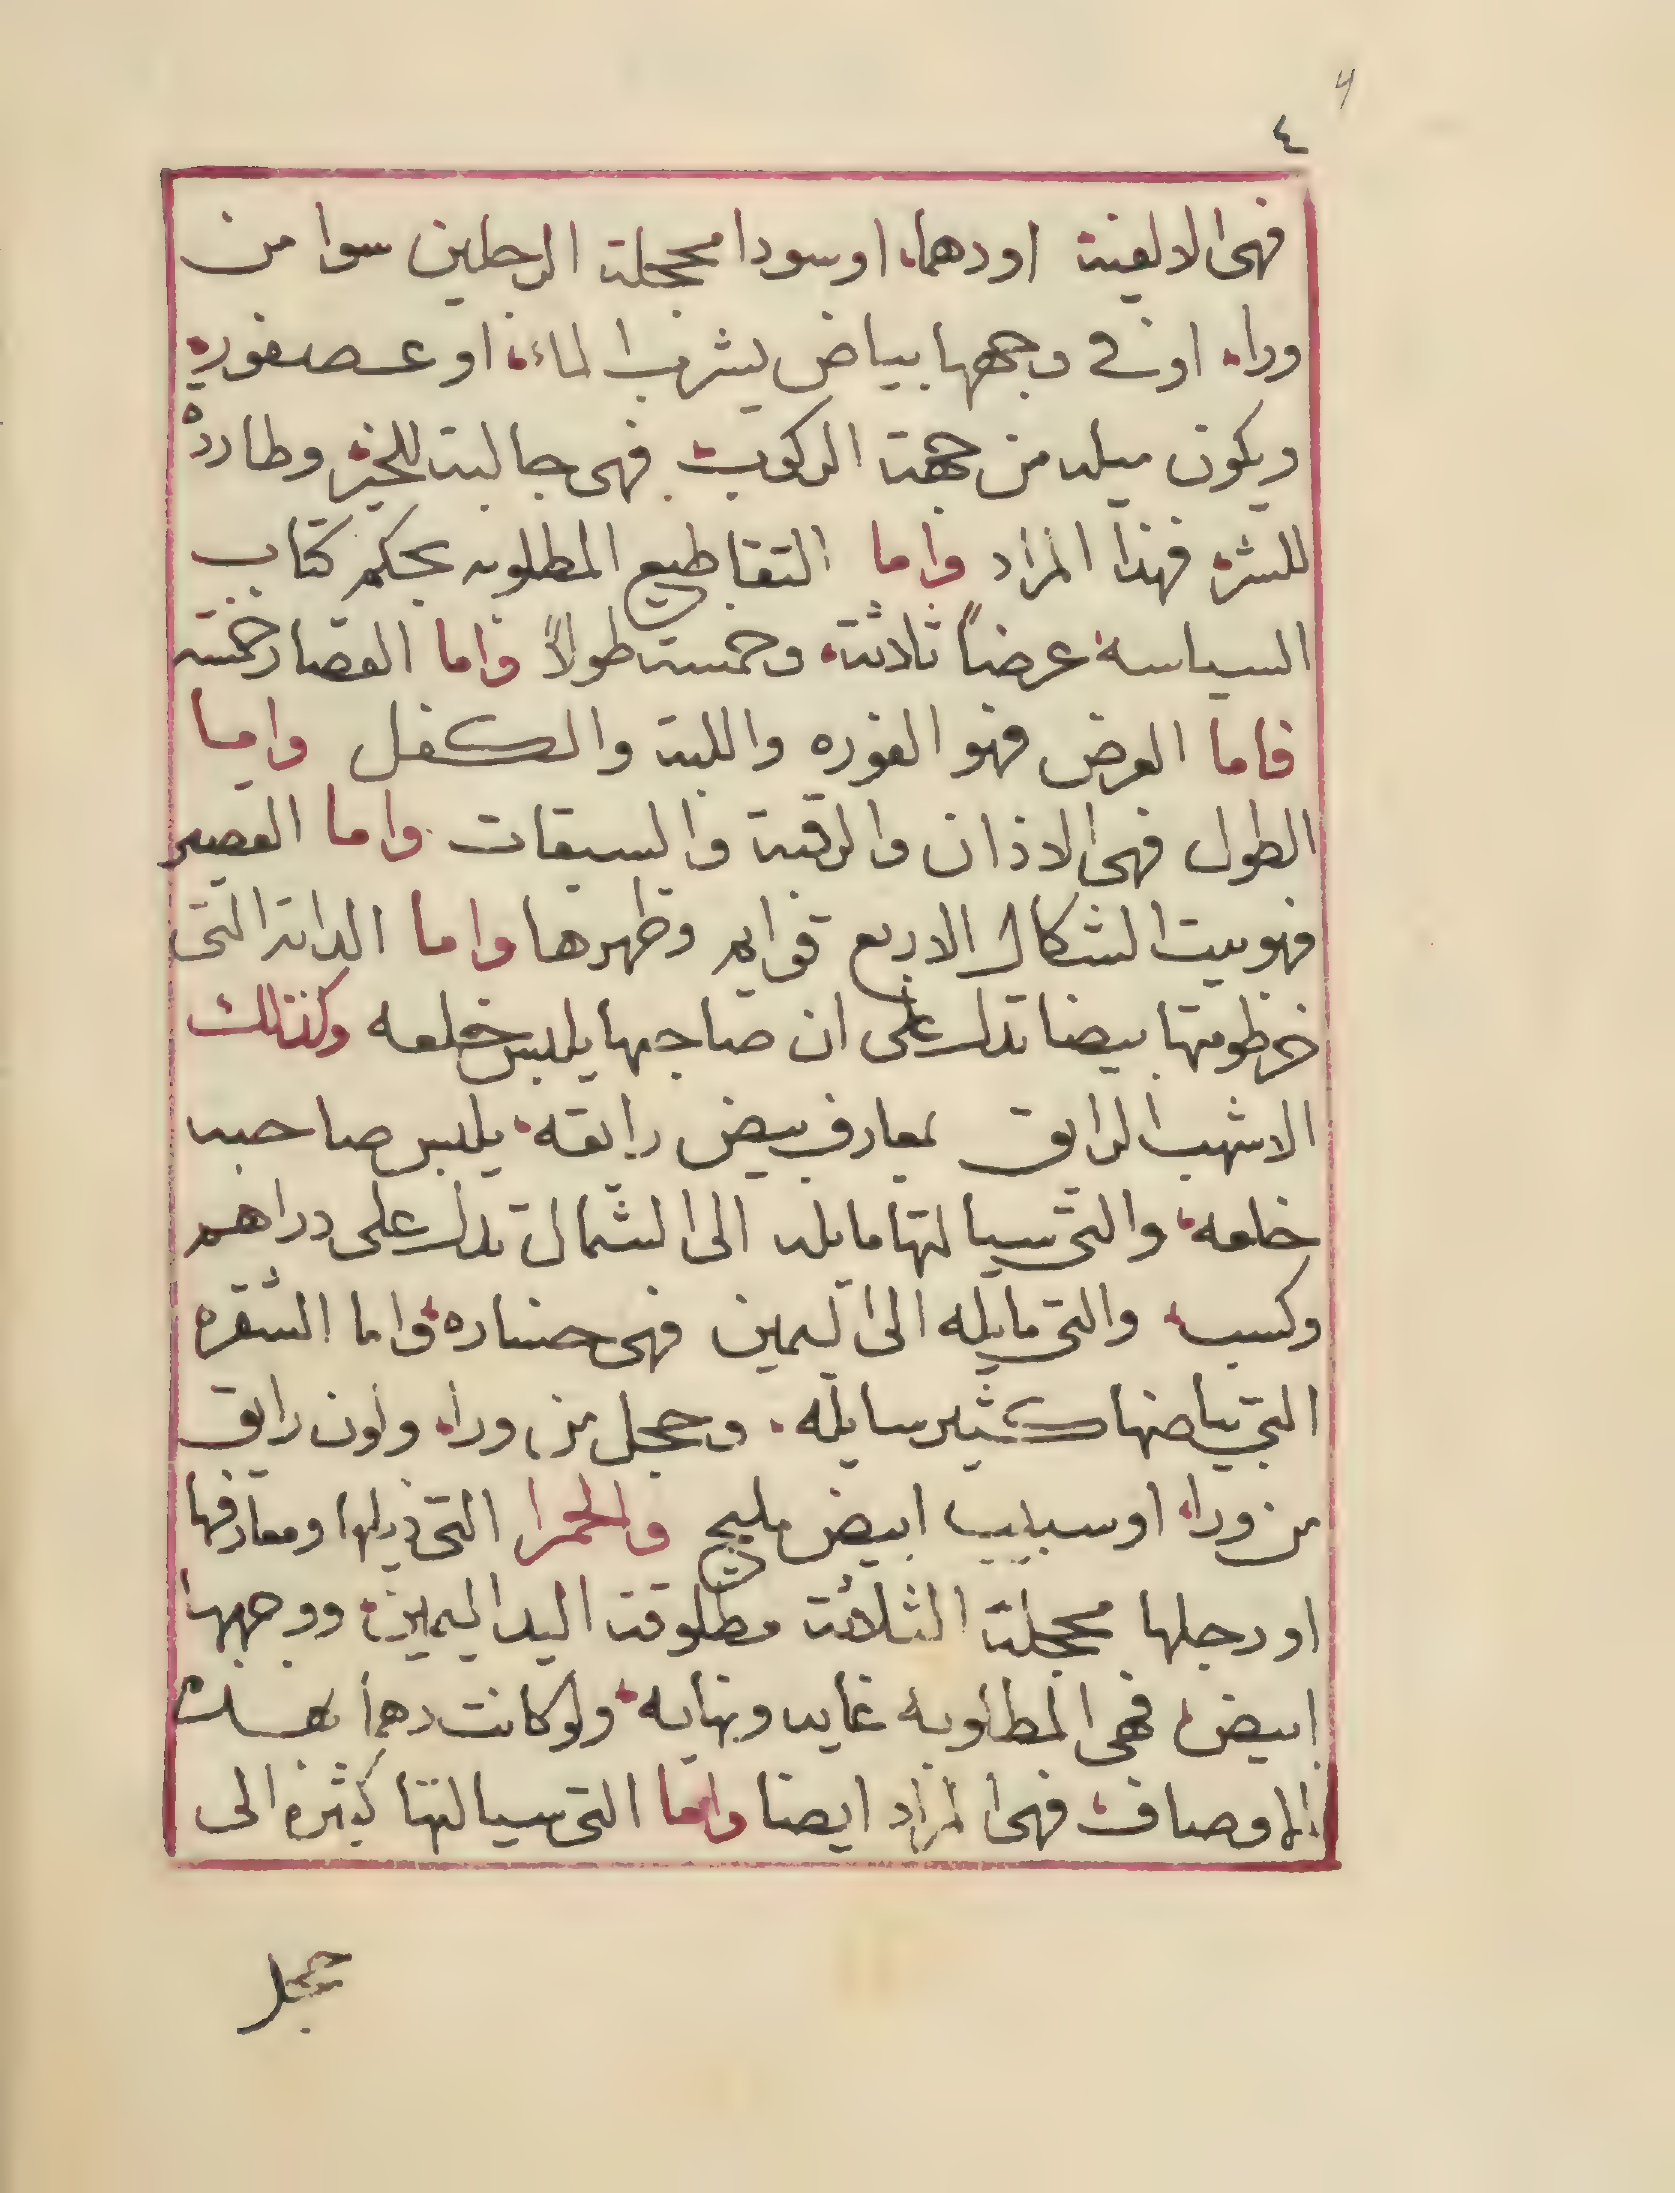 4
٤
فهى الالفية او دهما، او سودا محجلة الرجلين سوا من
ورا، او فى وجهها بياض يشرب الماء، او عصفوره
ويكون ميله من جهة الركوب فهى جالبة للخير وطارده
للشر فهذا المراد واما التقاطيع المطلوبه بحكم كتاب
السياسة عرضاً ثلاثة، وخمسة طولاً واما القصار خمسه
فاما العرض فهو الغوره واللبة والكفل واما
الطول فهى الاذان والرقبة والسيقات واما القصير
فهو بيت الشكال الاربع قوايم وظهرها واما الدابة التى
خرطومتها بيضا تدل على ان صاحبها يلبس خلعه وكذلك
الاشهب الرايق بمعارف بيض رايقه، يلبس صاحبه
خلعه، والتى سيالتها مايله الى الشمال تدل على دراهم
وكسب، والتى مايله الى اليمين فهى خساره، واما الشقره
التى بياضها كثير سايله، وحجل من ورا، ولون رايق
من ورا، او سبيب ابيض مليح والحمرا التى ذيلها ومعارفها
او رجلها محجلة الثلاثة مطلوقة اليد اليمين، ووجهها
ابيض فهى المطلوبه غايه ونهايه، ولو كانت دهما بهذه
الاوصاف، فهى المراد ايضا واما التى سيالتها كثيره الى
حجل